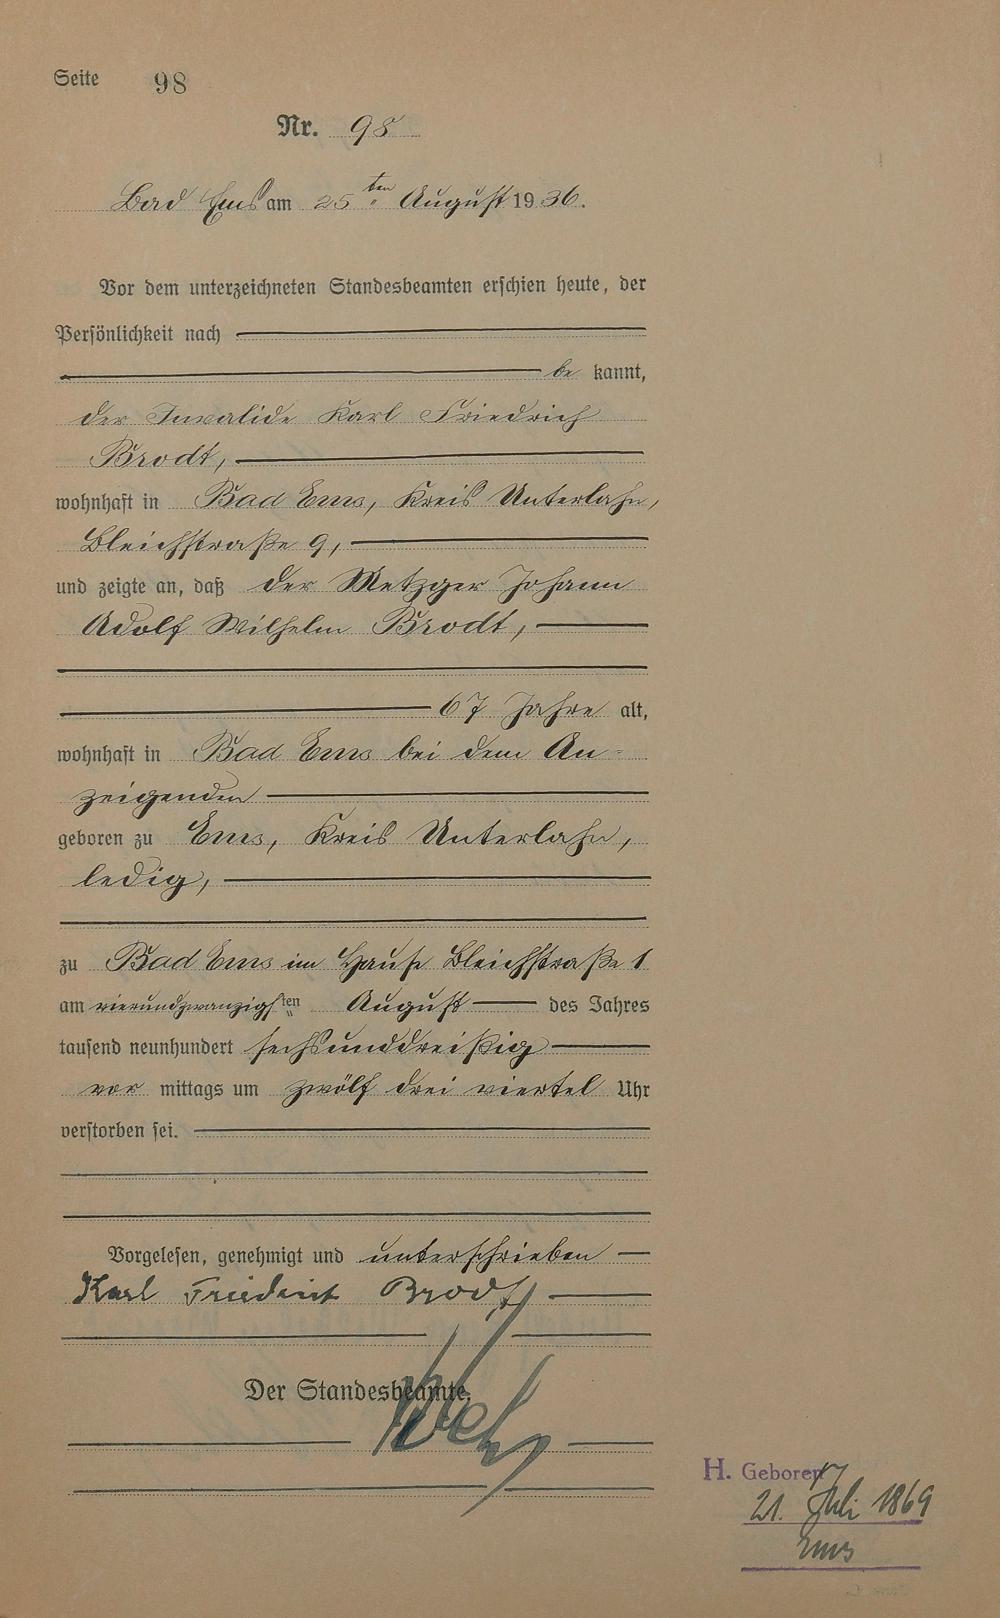 Seite 98
Nr. 98
Bad Ems am 25ten August 1936.
Vor dem unterzeichneten Standesbeamten erschien heute, der
Persönlichkeit nach
be kannt,
der Invalide Karl Friedrich
Brodt,
wohnhaft in Bad Ems, Kreis Unterlahn,
Bleichstraße 9,
und zeigte an, daß der Metzger Johann
Adolf Wilhelm Brodt,
67 Jahre alt,
wohnhaft in Bad Ems bei dem An-
zeigenden
geboren zu Ems, Kreis Unterlahn,
ledig,
zu Bad Ems im Hause Bleichstraße 1
am vierundzwanzigsten August des Jahres
tausend neunhundert sechsunddreißig
vor mittags um zwölf drei viertel Uhr
verstorben sei.
Vorgelesen, genehmigt und unterschrieben
Karl Friedrich Brodt
Der Standesbeamte.
H. Geboren
21. Juli 1869
Ems